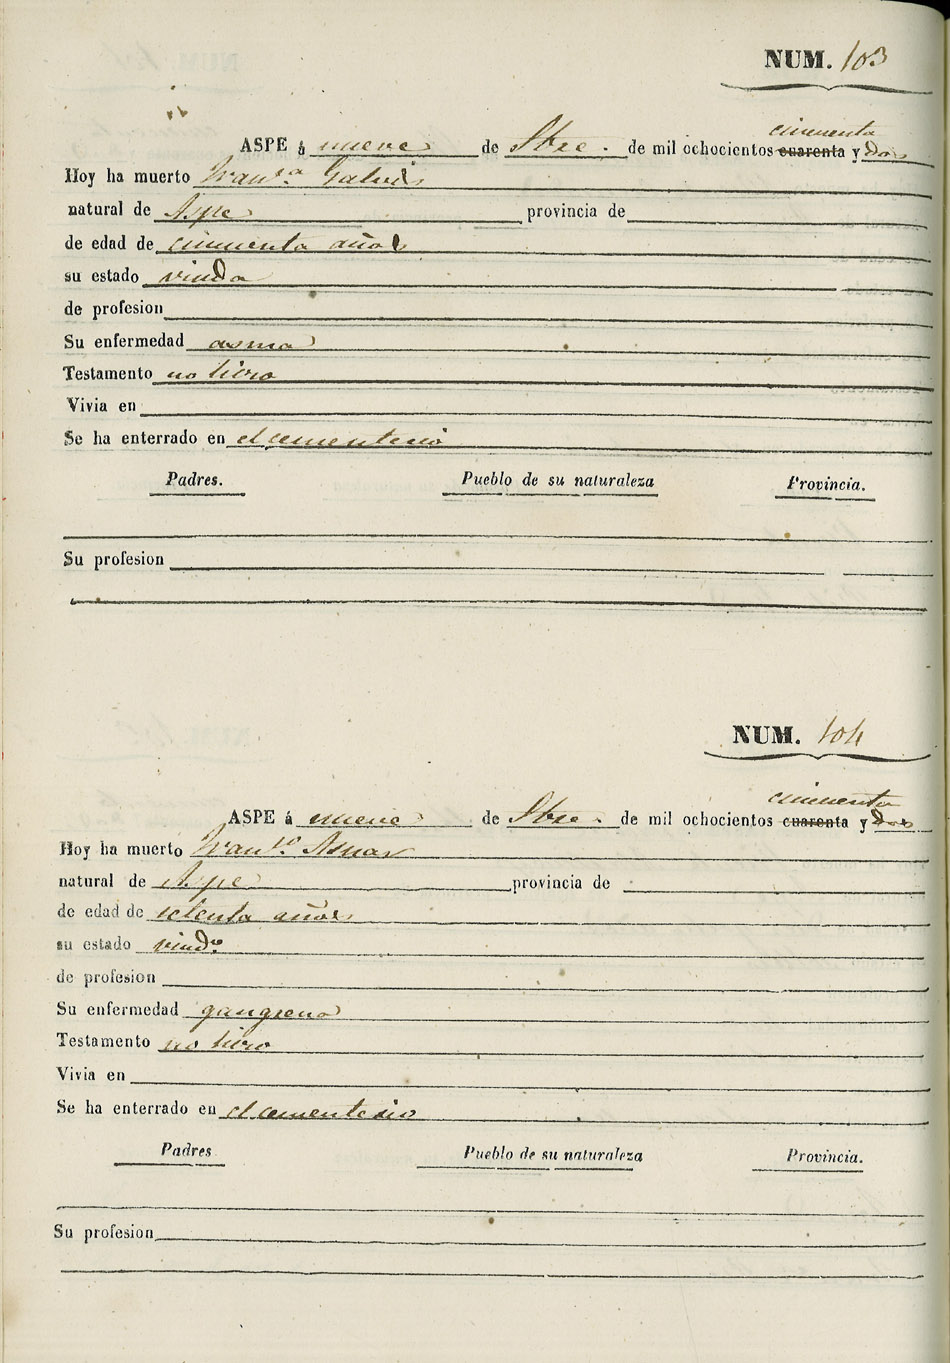 NUM. 103
cincuenta
ASPE á nueve de Sbre. de mil ochocientos cuarenta y dos
Hoy ha muerto Franca. Galvis
natural de Aspe provincia de
de edad de cincuenta años
su estado viuda
de profesion
Su enfermedad asma
Testamento no hiso
Vivia en
Se ha enterrado en el cementerio
Padres. Pueblo de su naturaleza Provincia.
Su profesion
NUM. 104
cincuenta
ASPE á nueve de Sbre. de mil ochocientos cuarenta y dos
Hoy ha muerto Franco. Asnar
natural de Aspe provincia de
de edad de setenta años
su estado viudo
de profesion
Su enfermedad gangrena
Testamento no hiso
Vivia en
Se ha enterrado en el cementerio
Padres Pueblo de su naturaleza Provincia.
Su profesion